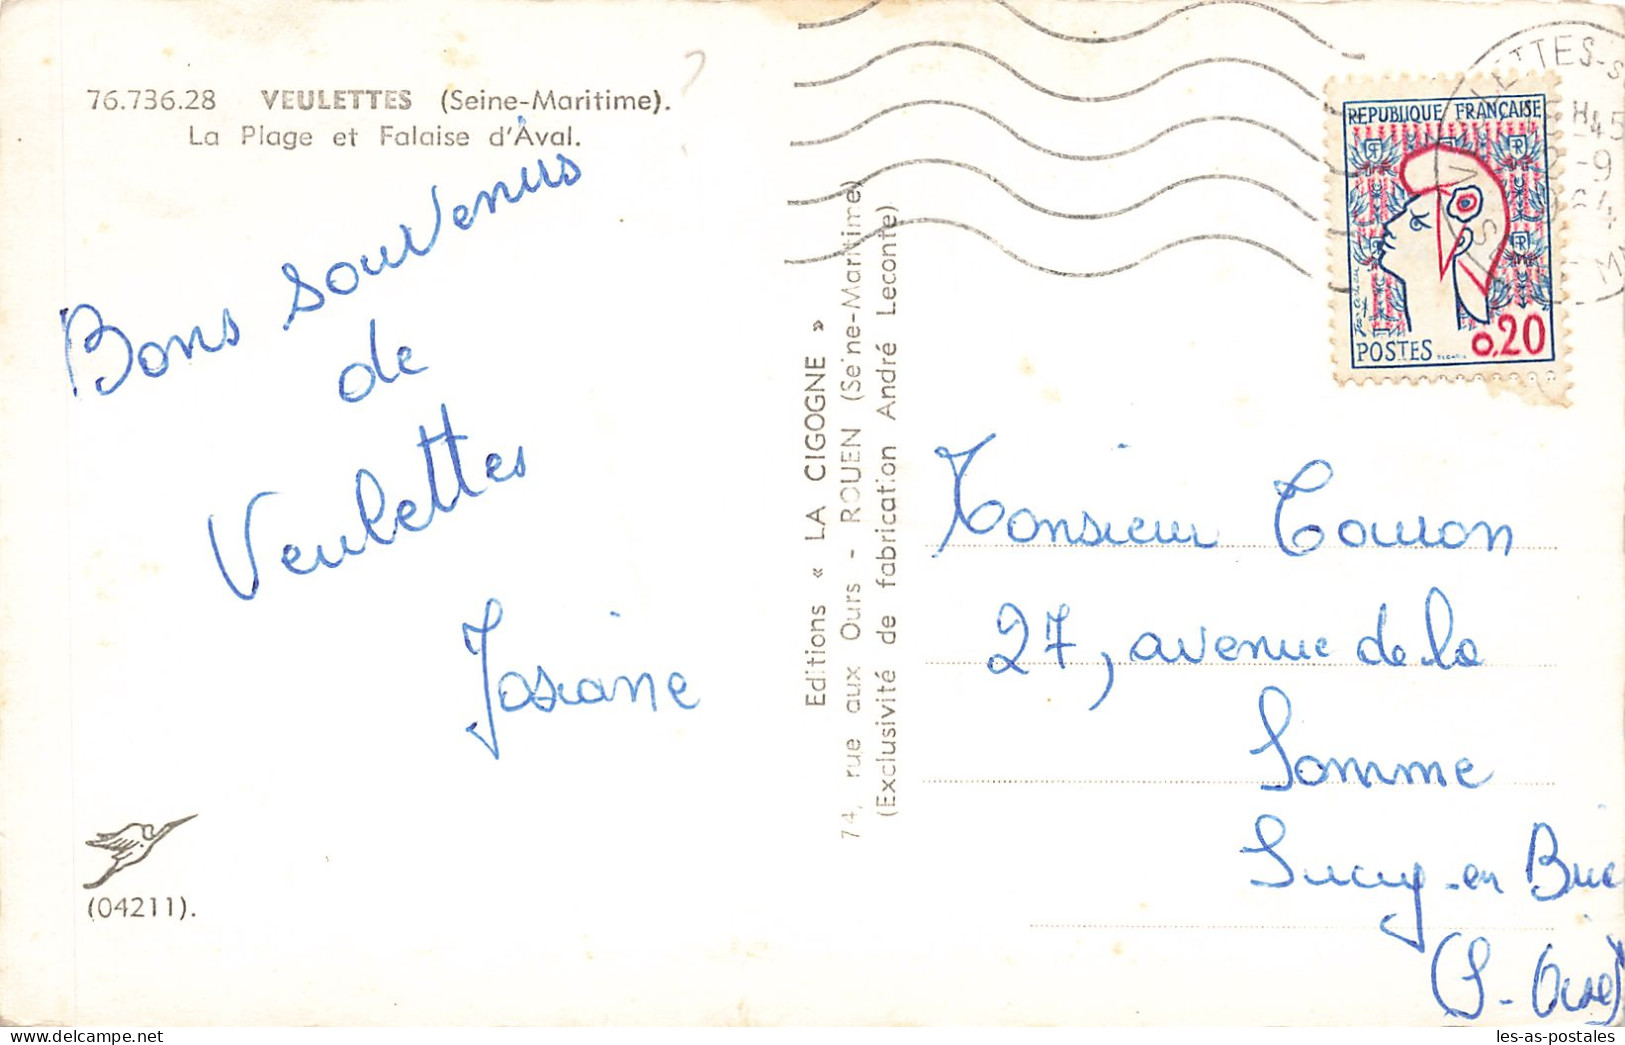 76.736.28 VEULETTES (Seine-Maritime).
La Plage et Falaise d'Aval.
Bons souvenus
de
Veulettes
Josiane
(04211).
Editions « LA CIGOGNE »
74, rue aux Ours - ROUEN (Seine-Maritime)
(Exclusivité de fabrication André Leconte)
REPUBLIQUE FRANÇAISE
POSTES 0,20
Monsieur Touron
27, avenue de la
Somme
Sucy-en Brie
(S-Oise)
les-as-postales